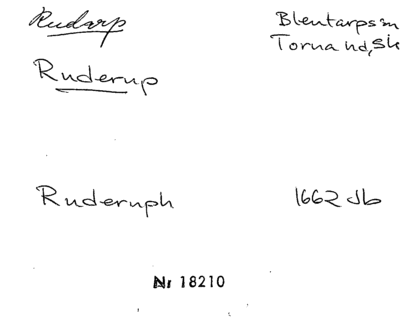 Rudarp
Blentarps sn
Torna hd, Sk
Ruderup
Ruderuph
1662 Jb
Nr 18210